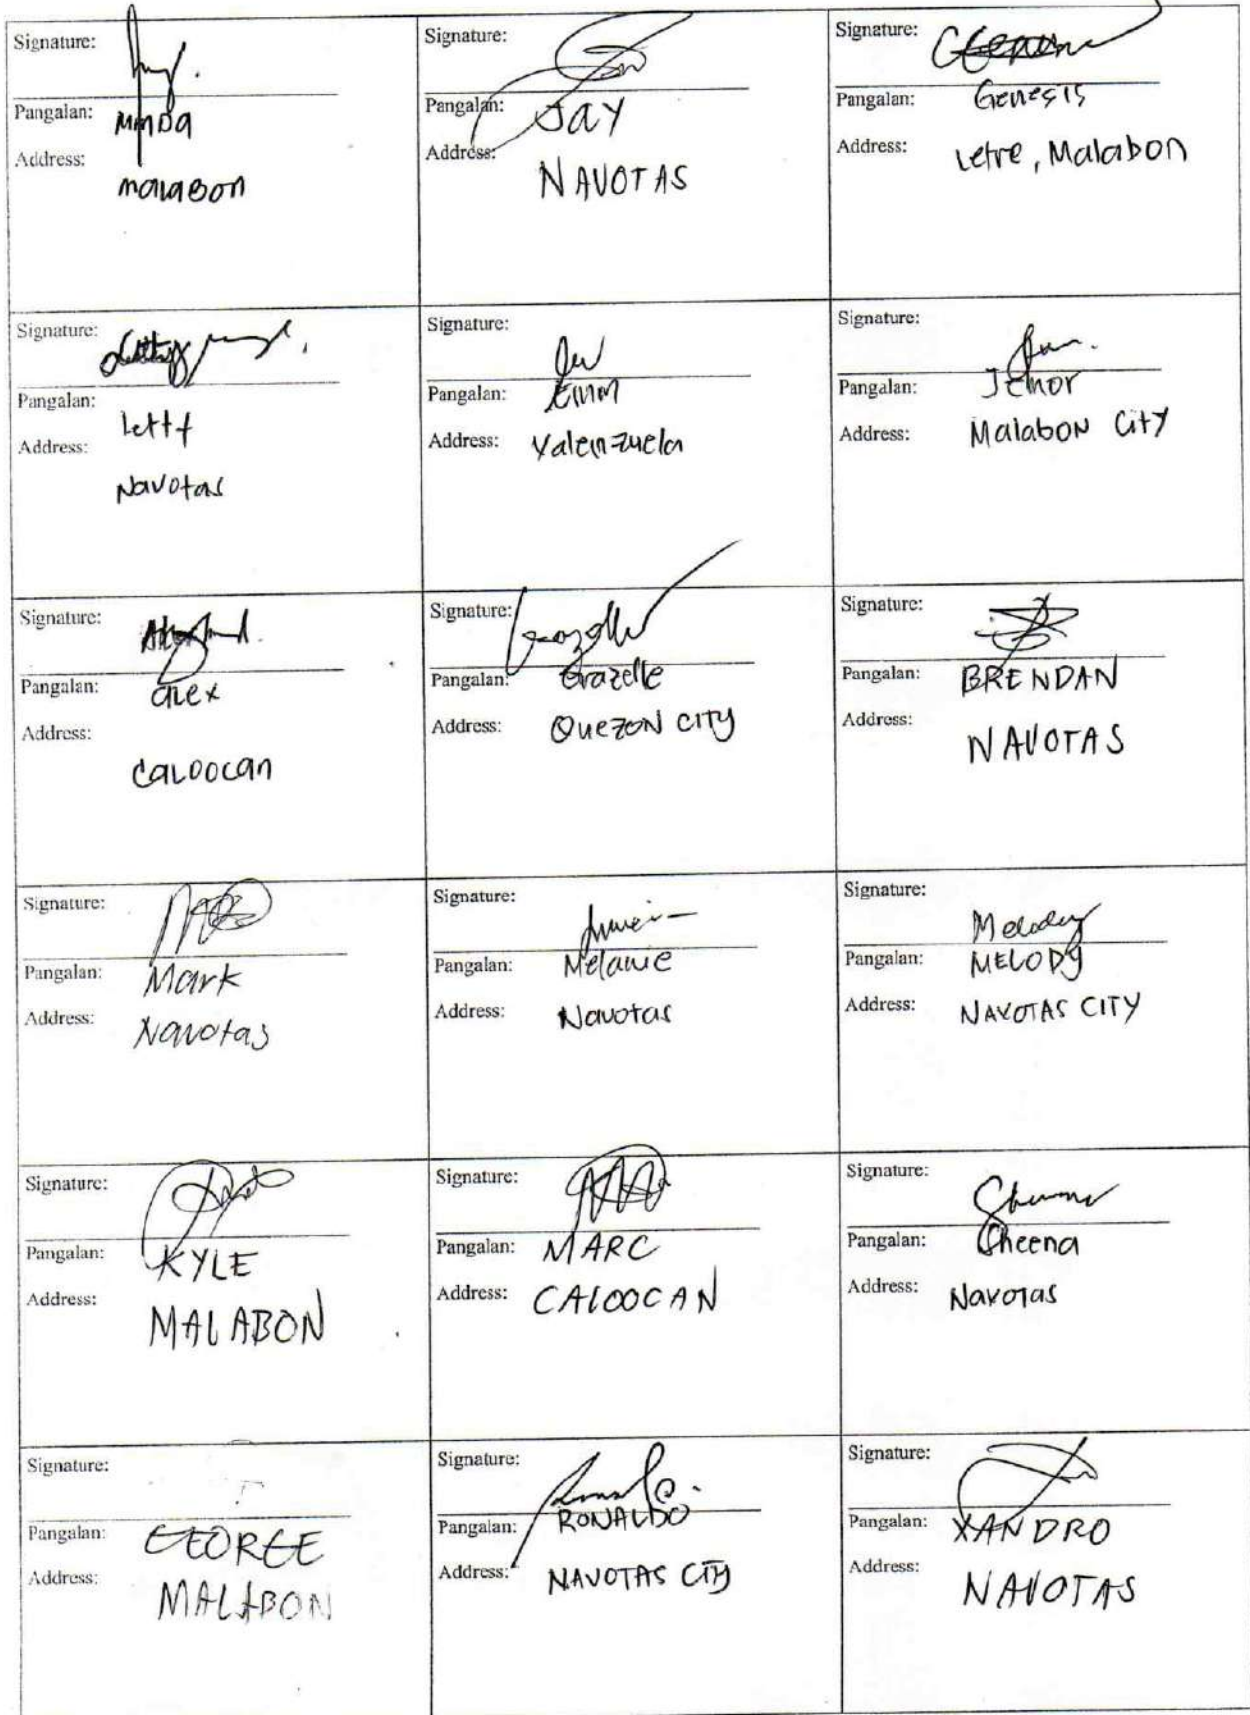 Signature:
Pangalan: Minda
Address:
malabon
Signature:
Pangalan: JAY
Address:
NAVOTAS
Signature:
Pangalan: Genesis
Address: Letre, Malabon
Signature:
Pangalan:
Address:
Navotas
Signature:
Pangalan:
Address: Valenzuela
Signature:
Pangalan: Jenor
Address: Malabon City
Signature:
Pangalan: alex
Address:
caloocan
Signature:
Pangalan: Grazelle
Address: Quezon City
Signature:
Pangalan: BRENDAN
Address:
NAVOTAS
Signature:
Pangalan: Mark
Address: Navotas
Signature:
Pangalan: Melanie
Address: Navotas
Signature: Melody
Pangalan: MELODY
Address: NAVOTAS CITY
Signature:
Pangalan: KYLE
Address:
MALABON
Signature:
Pangalan: MARC
Address: CALOOCAN
Signature:
Pangalan: Sheena
Address: Navotas
Signature:
Pangalan: GEORGE
Address: MALABON
Signature:
Pangalan: RONALDO
Address: NAVOTAS CITY
Signature:
Pangalan: XANDRO
Address:
NAVOTAS